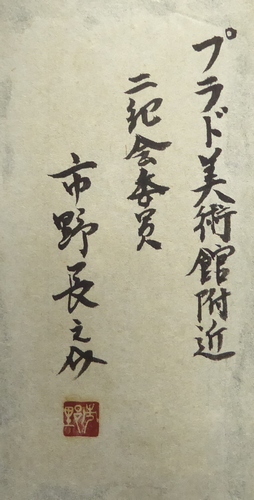 プラド美術館附近
二紀会委員
市野長之介
市野